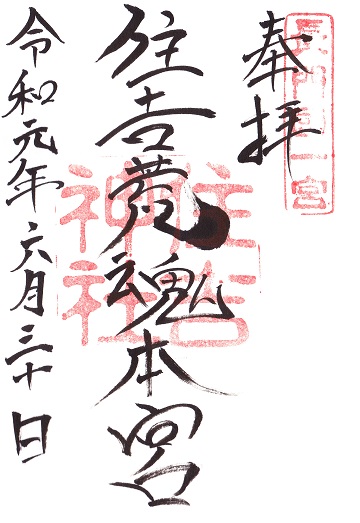 奉拝
長門国一宮
住吉荒魂本宮
住吉
神社
令和元年六月三十日